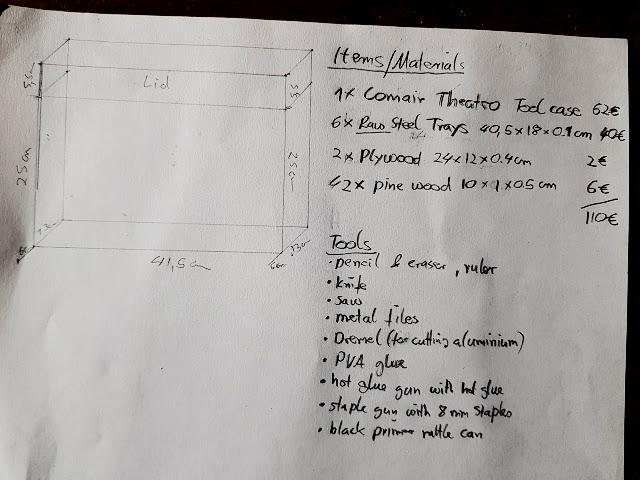 Items/Materials
1x Comair Theatro Tool case 62€
6x Raw Steel Trays 40,5x18x0.1cm 40€
2x Plywood 24x12x0.4cm 2€
42x pine wood 10x1x0.5cm 6€
110€
Tools
• pencil & eraser, ruler
• knife
• saw
• metal files
• Dremel (for cutting aluminium)
• PVA glue
• hot glue gun with hot glue
• staple gun with 8mm staples
• black primer rattle can
Lid
25cm
25cm
41,5cm